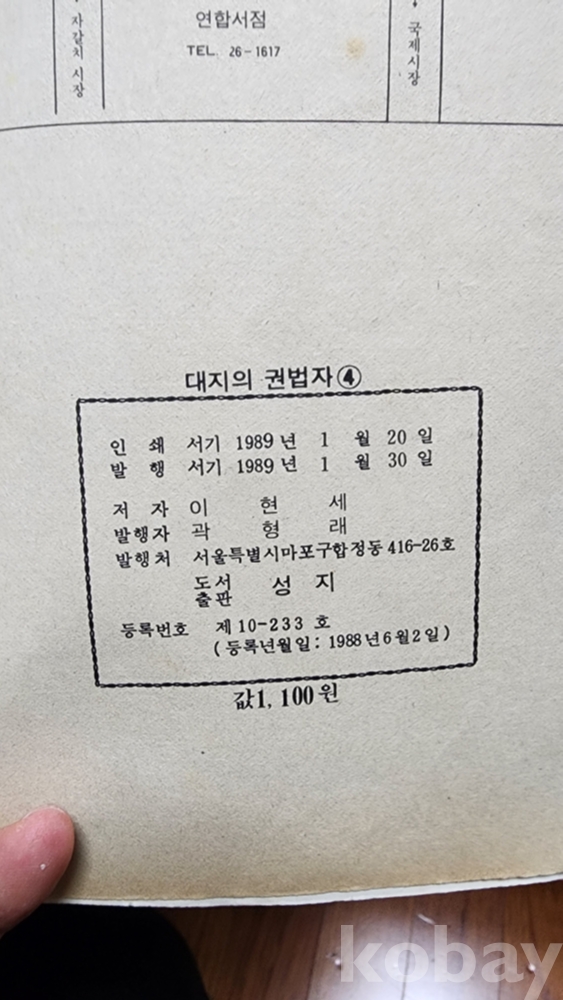 자갈치 시장
연합서점
TEL. 26-1617
국제시장
대지의 권법자④
인 쇄 서기 1989년 1 월 20 일
발 행 서기 1989년 1 월 30 일
저 자 이 현 세
발행자 곽 형 래
발행처 서울특별시마포구합정동 416-26호
도서
출판 성 지
등록번호 제 10-233 호
(등록년월일: 1988년6월2일)
값1, 100원
kobay